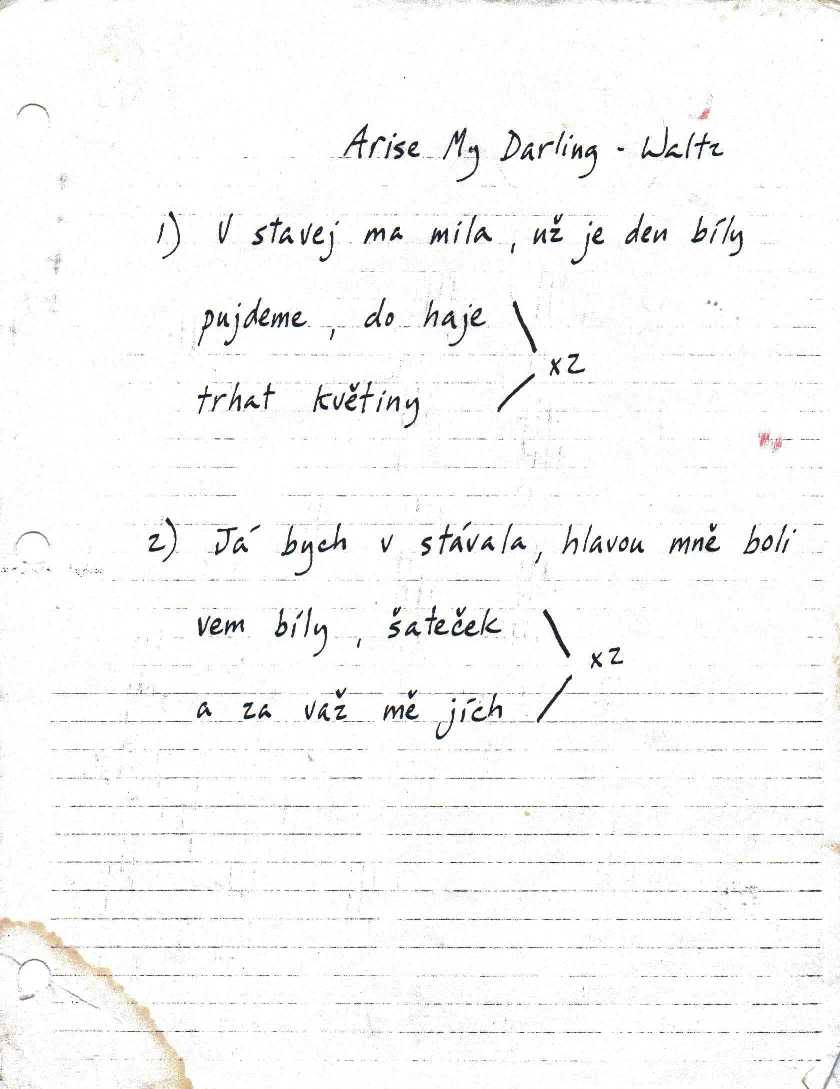 Arise My Darling - Waltz
1) V stavej ma mila, už je den bíly
pujdeme, do haje
x2
trhat květiny
2) Já bych v stávala, hlavou mně boli
vem bíly, šateček
x2
a za važ mě jích